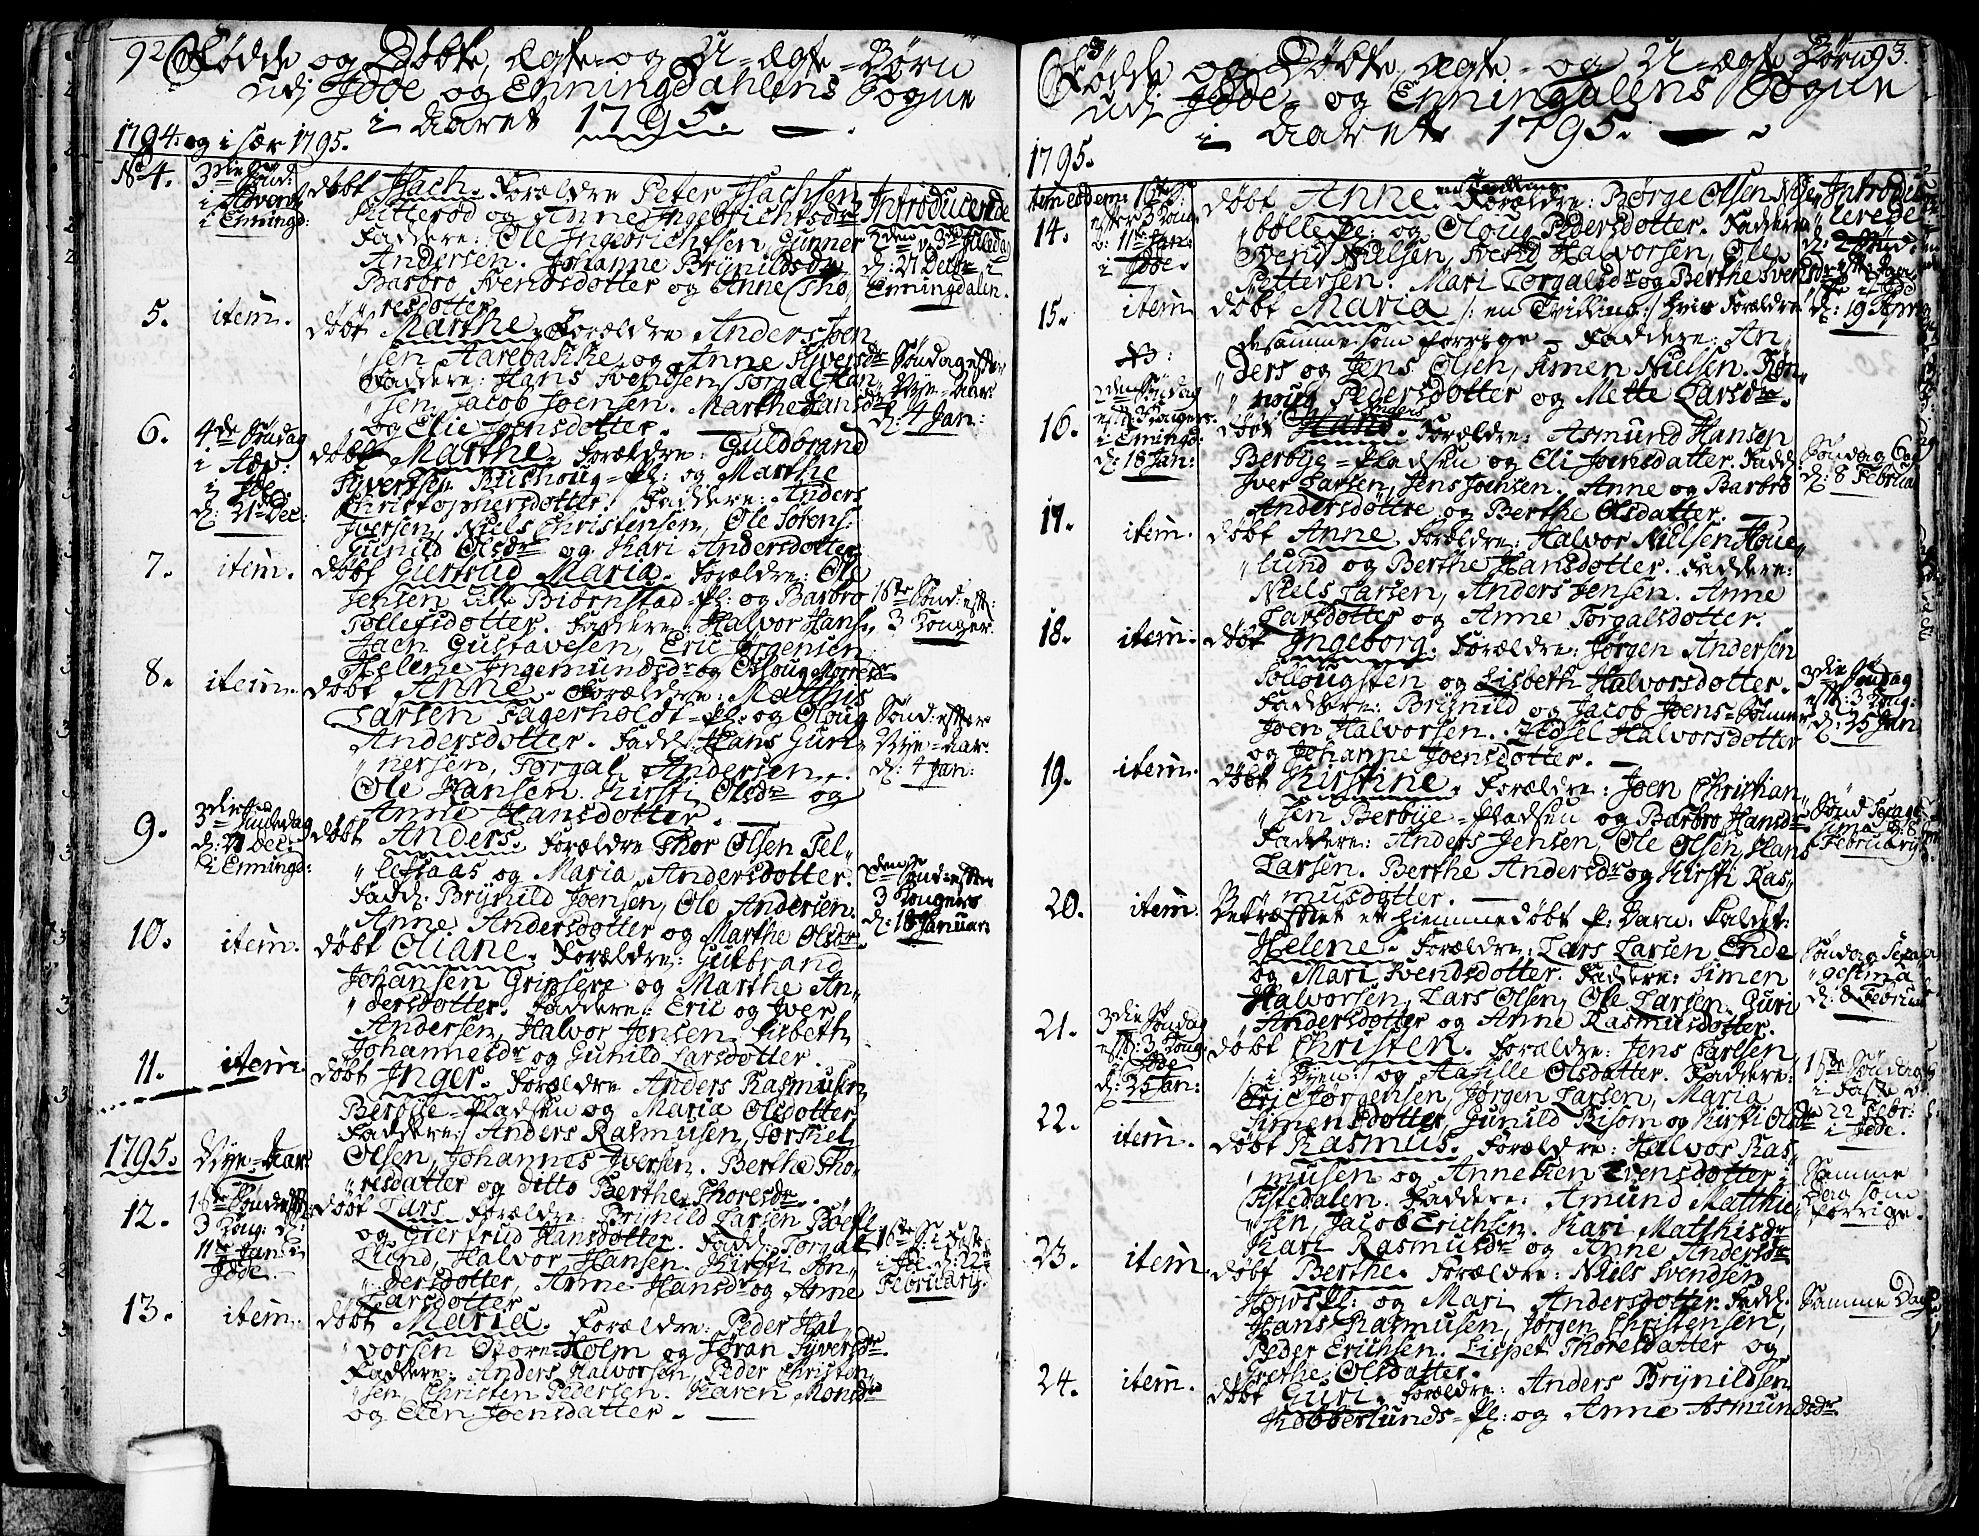 92 Fødde og Døbte, ægte- og U-ægte-Børn
udj Idde og Enningdahlens Sogne
i Aaret 1795.
1794. og i sær 1795.
No 4. 3die Sønd: i Advent i Enningd:
døbt Zach. Forældre Peter Zachsen
Kitterød og Anne Ingebrichtsdr
Faddere: Ole Ingebrichtsen, Gunner
Andersen. Johanne Brynildsdr
Barbro Svendsdotter og Anne Tho„
„resdotter
Introducerede
d: 27 Decbr i
Enningdalen.
5. item.
døbt Marthe. Forældre Anders Joen„
„sen Aarebakke og Anne Syversdr
Faddere: Hans Svendsen, Torgal Han„
„sen, Jacob Joensen. Marthe Hansdr
og Elie Joensdotter.
Søndag efter
Nye-Aar
d: 4 Jan:
6. 4de Søndag
i Adv:
i Idde.
d: 21de Dec:
døbt Marthe. Forældre: Guldbrand
Syversen Biishoug-Pl: og Marthe
Christophersdotter. Faddere: Anders
Iversen, Niels Christensen, Ole Sørens:
Gunild Olsdr og Kari Andersdotter
7. item.
døbt Giertrud Maria. Forældre: Ole
Jensen Lille Biørnstad-Pl: og Barbro
Tollefsdotter. Faddere: Halvor Hans:,
Zach Gustavesen, Eric Jørgensen
Helene Ingemundsdr og
1ste Sønd: eft:
3 Konger.
8. item.
døbt Anne. Forældre: Matthis
Larsen Fagerholdt-Pl. og Oloug
Andersdotter. Fadd: Hans Gun„
„nersen, Torgal Andersen,
Ole Hansen. Kirsti Olsdr og
Anne Hansdotter.
Sønd: efter
Nye-Aar.
d: 4 Jan:
9. 3die Juledag
d: 27 Dec:
i Enningd:
døbt Anders. Forældre Thor Olsen Tel„
„lefsaas og Maria Andersdotter.
Fadd: Brynild Joensen, Ole Andersen.
Anne Andersdotter og Marthe Olsdr
2den Sønd: efter
3 Kongers
d: 18 Januari
10. item.
døbt Oliane. Forældre: Gulbrand
Johansen Grinsere og Marthe An„
„dersdotter. Faddere: Eric og Iver
Andersen, Halvor Jonsen. Lisbeth
Johannesdr og Gunild Larsdotter.
11. item.
døbt Inger. Forældre Anders Rasmusen
Berbye-Pladsen og Maria Olsdotter
Faddere: Anders Rasmusen, Torkiel
Olsen, Johannes Iversen. Berthe Tho„
„resdatter og ditto Berthe Thoresdr.
1795. Nye-Aar.
12. 1ste Sønd: eft:
3 Kong: d:
11te Jan: i
Idde.
døbt Lars. Forældre: Brynild Larsen
og Giertrud Hansdotter. Fadd: Torgal
Lund, Halvor Hansen. Kirsti An„
„dersdotter, Anne Hansdr og Anne
Larsdotter
1ste S: i Faste
i Idde d: 22
Februarij.
13. item.
døbt Maria. Forældre: Peder Hal„
„vorsen Store-Holm og Søran Syversdr
Faddere: Anders Halvorsen, Peder Christen„
„sen, Christen Pedersen. Karen Monsdr
og Elen Joensdatter.
Fødde og Døbte ægte- og U-ægte Børn 93.
udj Idde- og Enningdalens Sogne
i Aaret 1795.
1795.
14. item eodem: 1ste S:
efter 3 Kong:
d: 11te Jan:
i Idde.
døbt Anne en Tvilling. Forældre: Børge Olsen
„bølle Pl: og Oloug Pedersdotter. Faddere
Svend Nielsen, Svend Halvorsen, Ole
Pettersen. Mari Torgalsdr og Berthe Svendsdr
Introdu„
„cerede
15. item
døbt Maria /: en Tvilling :/ hvis Forældre
desamme som forrige. Faddere: An„
„ders og Jens Olsen, Simen Nielsen. Røn„
„noug Pedersdotter og Mette Larsdr.
d: 19 April
16. 2den Søndag
eft: 3 Kongers
i Enningd:
d: 18 Jan:
døbt Hans Anders. Forældre: Asmund Hansen
Berbye-Pladsen og Eli Joensdatter. Fadd:
Iver Larsen, Jens Joensen. Anne og Barbro
Andersdøttre og Berthe Olsdatter.
Søndag
d: 8 Februa
17. item.
døbt Anne. Forældre: Halvor Nielsen Houe„
„lund og Berthe Hansdotter. Faddere:
Niels Larsen, Anders Jensen. Anne
Larsdotter og Anne Torgalsdotter.
18. item:
døbt Ingeborg. Forældre: Jørgen Andersen
Sollougsten og Lisbeth Halvorsdotter.
Faddere: Brynild og Jacob Joens-Sønner
Joen Halvorsen. Sidsel Halvorsdotter
og Johanne Joensdotter.
3die Søndag
eft: 3 Kong:
d: 25 Jan
19. item.
døbt Kirstine. Forældre: Joen Christian„
„sen Berbye-Pladsen og Barbro Hansdr
Faddere: Anders Jensen, Ole Olsen, Hans
Larsen. Berthe Andersdr og Kirsti Ras„
„musdotter.
Sønd Sexage„
„sima d: 8
Februarij
20. item.
Betræftet et hiemmedøbt P: Barn kaldet:
Helene. Forældre: Lars Larsen Ende
og Mari Svendsdotter. Faddere: Simen
Halvorsen, Lars Olsen, Ole Larsen. Guri
Andersdotter og Anne Rasmusdotter.
Søndag Sexa„
„gesima
d: 8 Februa
21. 3die Søndag
eft: 3 Kong:
Idde
d: 25 Jan:
døbt Christen. Forældre: Jens Carlsen
/: i Byen :/ og Aagille Olsdatter. Faddere:
Eric Jørgensen, Jørgen Larsen, Maria
Simensdotter, Gunild Risom og Kirsti Olsdr
1ste Søndag
i Faste
d: 22 Febr:
i Idde.
22. item.
døbt Rasmus. Forældre: Halvor Ras„
„musen og Anneken Evensdotter
Tistedalen. Faddere: Amund Matthie„
„sen, Jacob Erichsen. Kari Matthisdr
Kari Rasmusdr og Anne Andersdr
Samme
Dag som
forrige.
23. item
døbt Berthe. Forældre: Niels Svendsen
Hows Pl: og Mari Andersdotter. Fadd:
Hans Rasmusen, Jørgen Christensen,
Peder Erichsen. Lispet Thoresdatter og
Grethe Olsdatter.
Samme Dag
24. item.
døbt Guri. Forældre: Anders Brynildsen
Kobberlunds-Pl: og Anne Asmundsdr